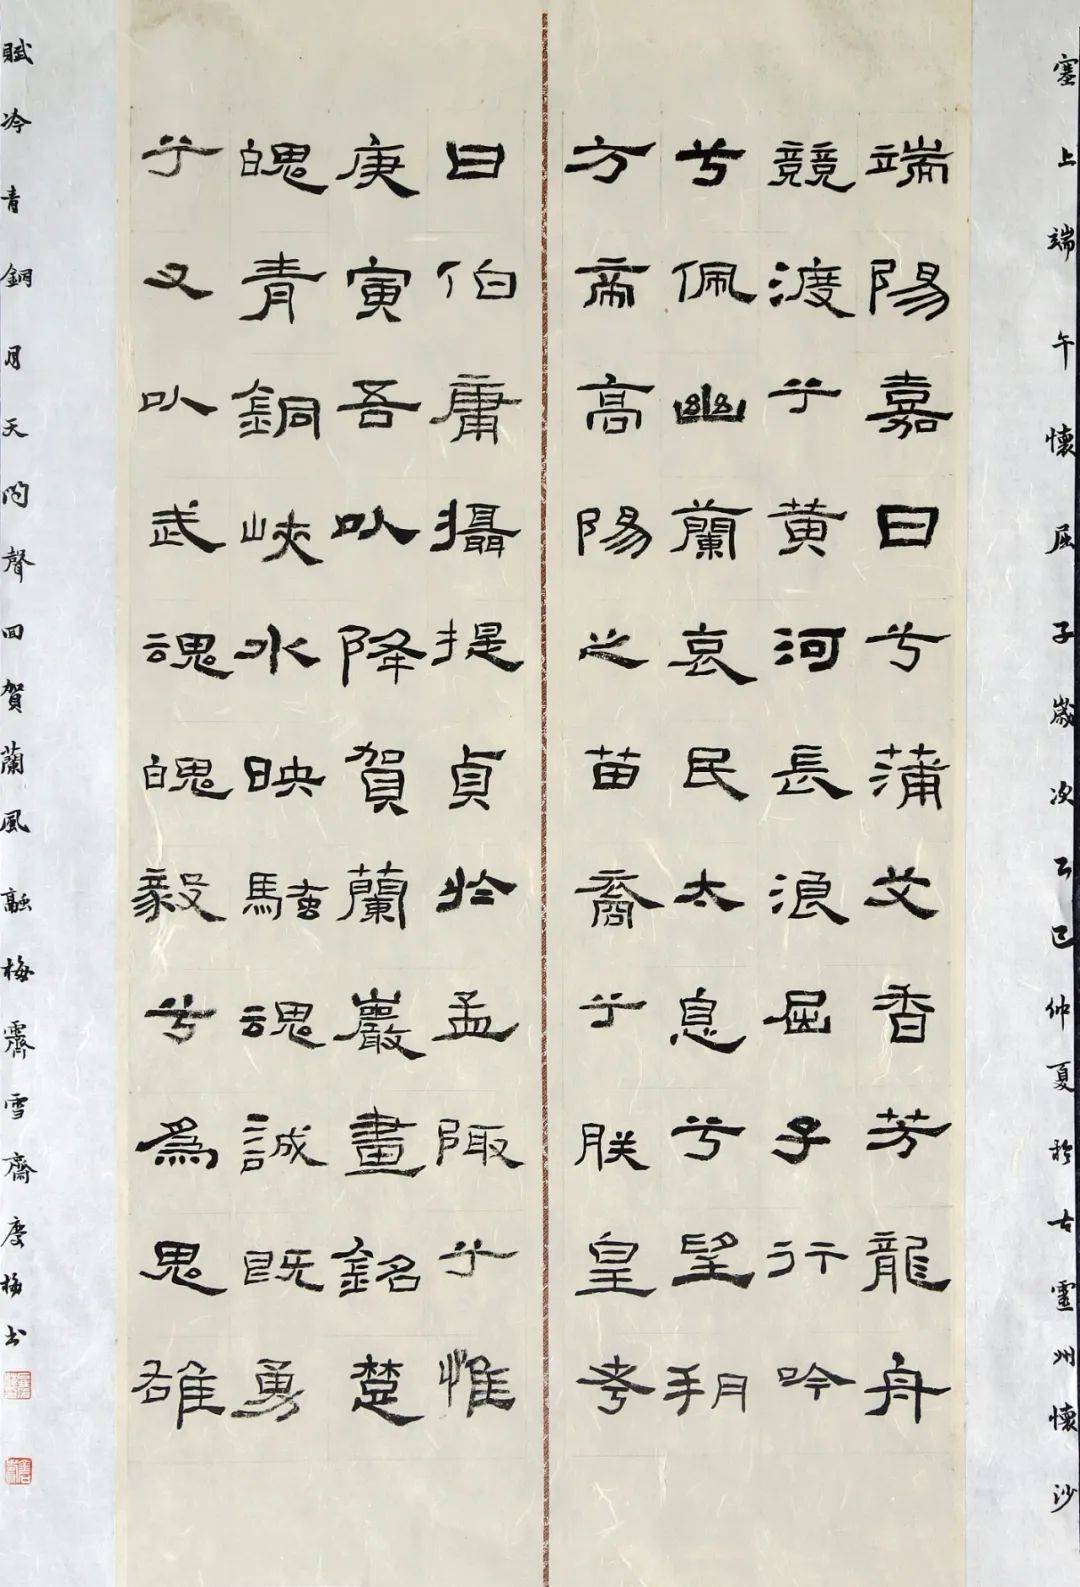 塞上端午懷屈子歲次乙巳仲夏於古靈州懷沙
端陽嘉日兮蒲艾香芳龍舟
競渡于黄河長浪屈子行吟
兮佩幽蘭哀民太息兮望朔
方帝高陽之苗裔兮朕皇考
曰伯庸攝提貞於孟陬兮惟
庚寅吾以降賀蘭巖畫銘楚
魄青銅峽水映騷魂誠既勇
兮又以武魂魄毅兮為鬼雄
賦吟青銅月天問聲回賀蘭風融梅霽雪齋慶梅書